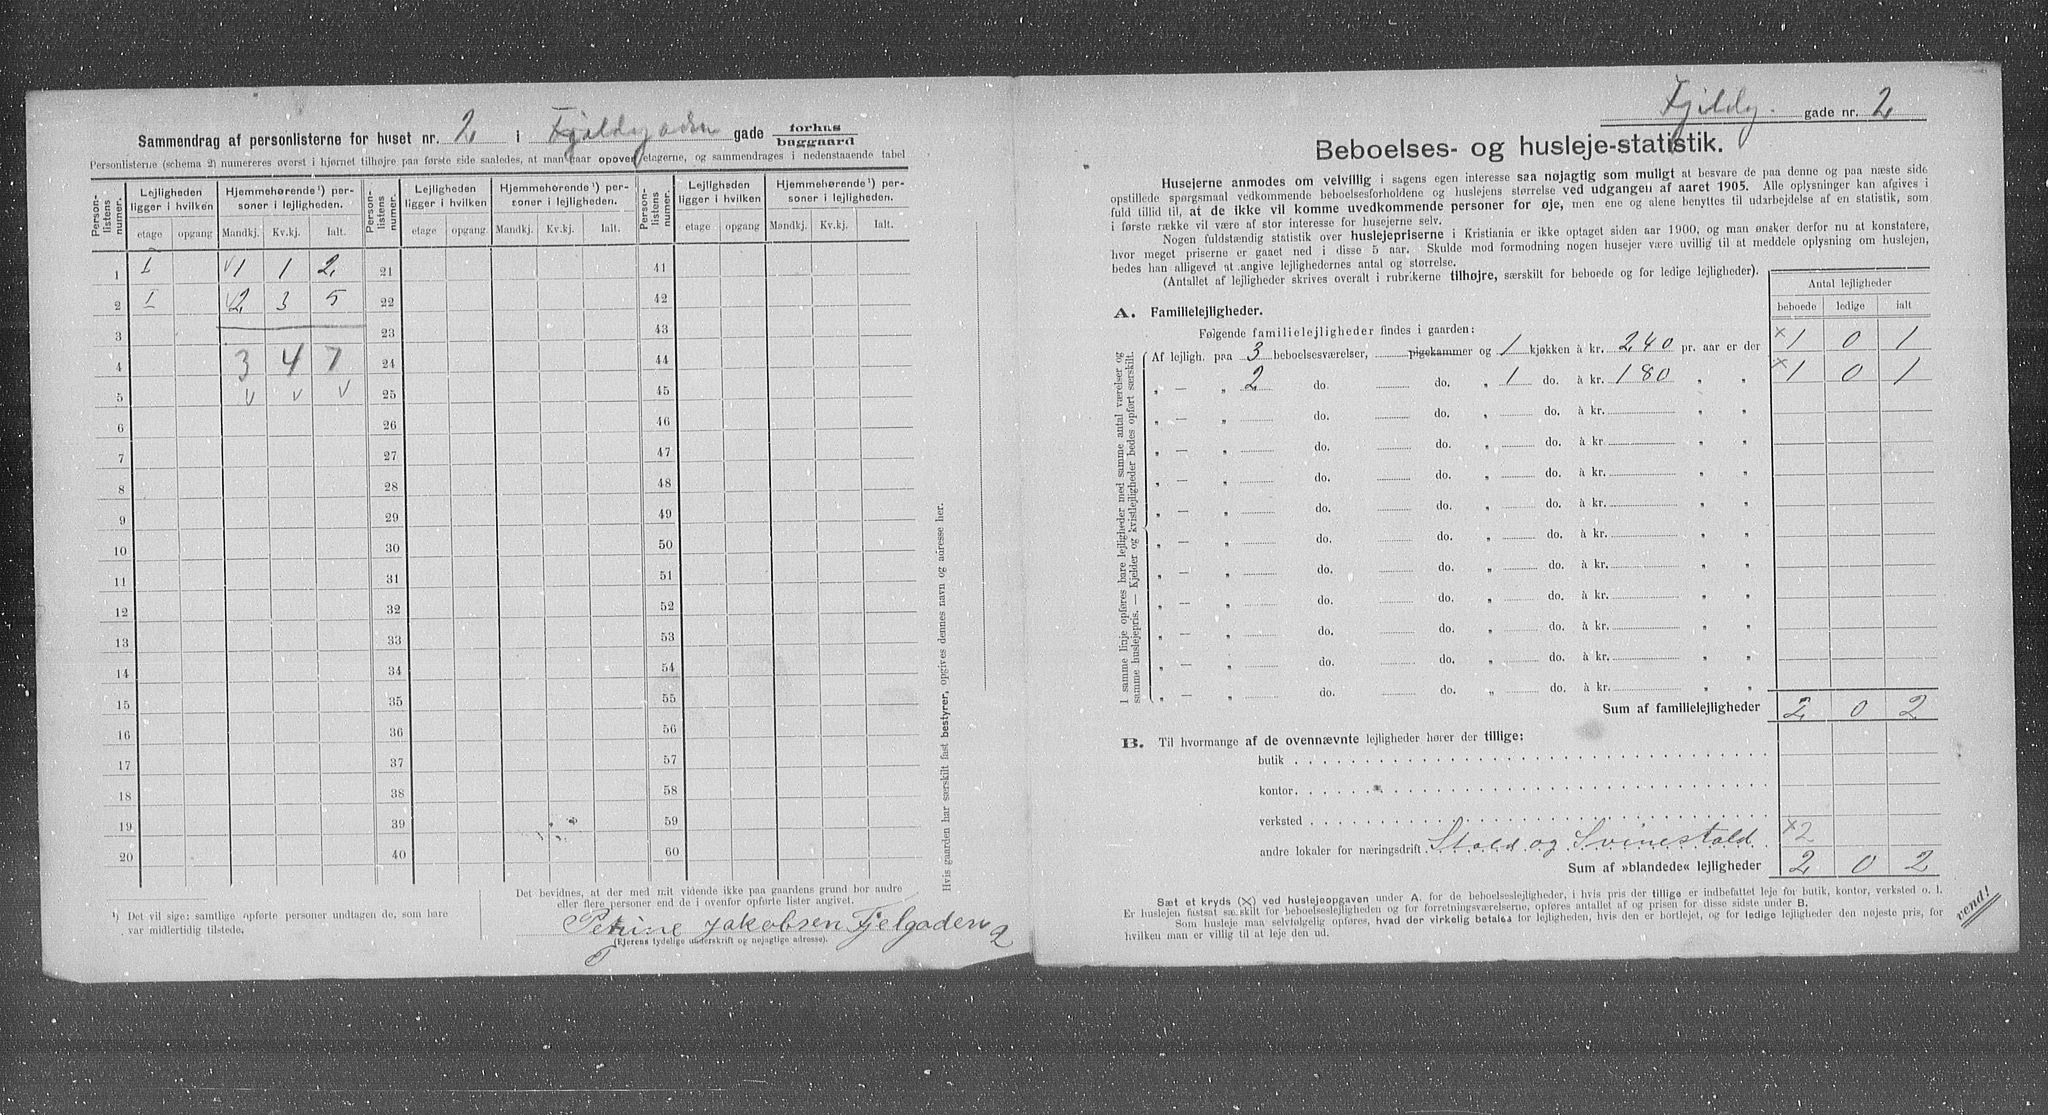 Sammendrag af personlisterne for huset nr. 2 i Fjeldgaden gade forhus baggaard
Personlisterne (schema 2) numereres øverst i hjørnet tilhøjre paa første side saaledes, at man gaar opover etagerne, og sammendrages i nedenstaaende tabel
Person-listens numer. | Lejligheden ligger i hvilken | Hjemmehørende¹) personer i lejligheden. | Person-listens numer. | Lejligheden ligger i hvilken | Hjemmehørende¹) personer i lejligheden. | Person-listens numer. | Lejligheden ligger i hvilken | Hjemmehørende¹) personer i lejligheden.
etage opgang Mandkj. Kv.kj. Ialt. etage opgang. Mandkj. Kv.kj. Ialt. etage opgang Mandkj. Kv.kj. Ialt.
1 I √1 1 2 21 41
2 I √2 3 5 22 42
3 23 43
4 3 4 7 24 44
5 v v v 25 45
6 26 46
7 27 47
8 28 48
9 29 49
10 30 50
11 31 51
12 32 52
13 33 53
14 34 54
15 35 55
16 36 56
17 37 57
18 38 58
19 39 59
20 40 60
¹) Det vil sige: samtlige opførte personer undtagen de, som bare
var midlertidig tilstede.
Det bevidnes, at der med mit vidende ikke paa gaardens grund bor andre
eller flere personer end de i ovenfor opførte lister angivet.
Petrine Jakobsen Fjelgaden 2
(Ejerens tydelige underskrift og nøjagtige adresse).
Hvis gaarden har særskilt fast bestyrer, opgives dennes navn og adresse her.
Fjeldg. gade nr. 2
Beboelses- og husleje-statistik.
Husejerne anmodes om velvillig i sagens egen interesse saa nøjagtig som muligt at besvare de paa denne og paa næste side
opstillede spørgsmaal vedkommende beboelsesforholdene og huslejens størrelse ved udgangen af aaret 1905. Alle oplysninger kan afgives i
fuld tillid til, at de ikke vil komme uvedkommende personer for øje, men ene og alene benyttes til udarbejdelse af en statistik, som
i første række vil være af stor interesse for husejerne selv.
Nogen fuldstændig statistik over huslejepriserne i Kristiania er ikke optaget siden aar 1900, og man ønsker derfor nu at konstatere,
hvor meget priserne er gaaet ned i disse 5 aar. Skulde mod formodning nogen husejer være uvillig til at meddele oplysning om huslejen,
bedes han alligevel at angive lejlighedernes antal og størrelse.
(Antallet af lejligheder skrives overalt i rubrikerne tilhøjre, særskilt for beboede og for ledige lejligheder).
Antal lejligheder
beboede ledige ialt
A. Familielejligheder.
Følgende familielejligheder findes i gaarden:
Af lejligh. paa 3 beboelsesværelser, pigekammer og 1 kjøkken à kr. 240 pr. aar er der ×1 0 1
„ — „ 2 do. do. „ 1 do. à kr. 180 „ „ ×1 0 1
„ — „ do. do. „ do. à kr. „ „
„ — „ do. do. „ do. à kr. „ „
„ — „ do. do. „ do. à kr. „ „
„ — „ do. do. „ do. à kr. „ „
„ — „ do. do. „ do. à kr. „ „
„ — „ do. do. „ do. à kr. „ „
„ — „ do. do. „ do. à kr. „ „
„ — „ do. do. „ do. à kr. „ „
„ — „ do. do. „ do. à kr. „ „
„ — „ do. do. „ do. à kr. „ „
I samme linje opføres bare lejligheder med samme antal værelser og
samme huslejepris. — Kjelder og kvistlejligheder bedes opført særskilt.
Sum af familielejligheder 2 0 2
B. Til hvormange af de ovennævnte lejligheder hører der tillige:
butik
kontor
verksted
andre lokaler for næringsdrift Stald og Svinestald ×2
Sum af »blandede« lejligheder 2 0 2
Sæt et kryds (×) ved huslejeopgaven under A. for de beboelseslejligheder, i hvis pris der tillige er indbefattet leje for butik, kontor, verksted o. l.
Er huslejen fastsat særskilt for beboelseslejligheden og for forretningsværelserne, opføres antallet af og prisen for disse sidste under B.
Som husleje maa selvfølgelig opføres, hvad der virkelig betales for lejligheden, hvis den er bortlejet, og for ledige lejligheder den nøjeste pris, for
hvilken man er villig til at leje den ud.
vend!